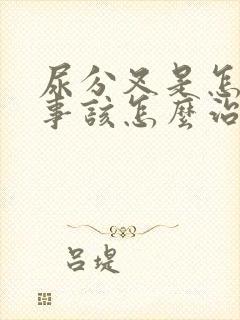 尿分叉是怎
事該怎麼治
吕堤